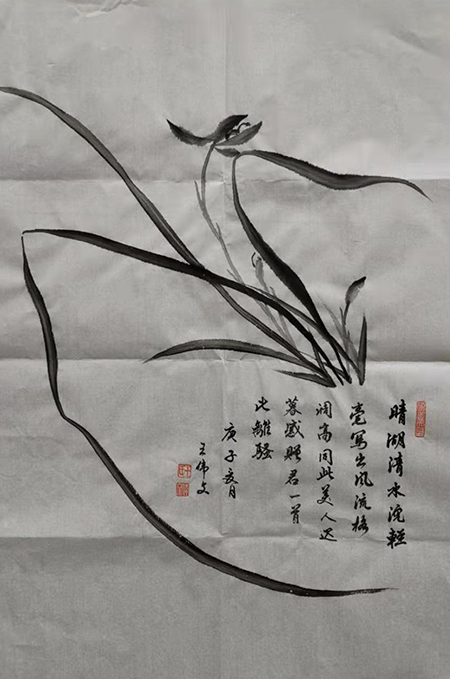 晴湖清水浣輕
毫写出风流格
调高同此美人迟
暮感赠君一首
比離骚
庚子夏月
王伟文